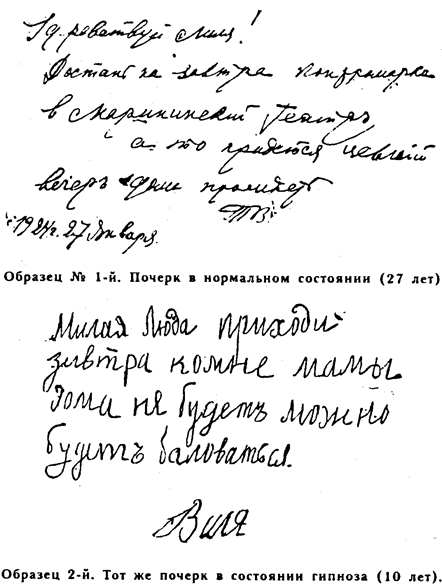 Здравствуй Миша!
Достань на завтра контрамарка
в Мариинский Театръ
а то придется целый
вечеръ дома просидеть
ТВ
1924г. 27 Января.
Образец № 1-й. Почерк в нормальном состоянии (27 лет)
Милая Люда приходи
завтра комне мамы
дома не будетъ можно
будетъ баловаться.
Виля
Образец 2-й. Тот же почерк в состоянии гипноза (10 лет).